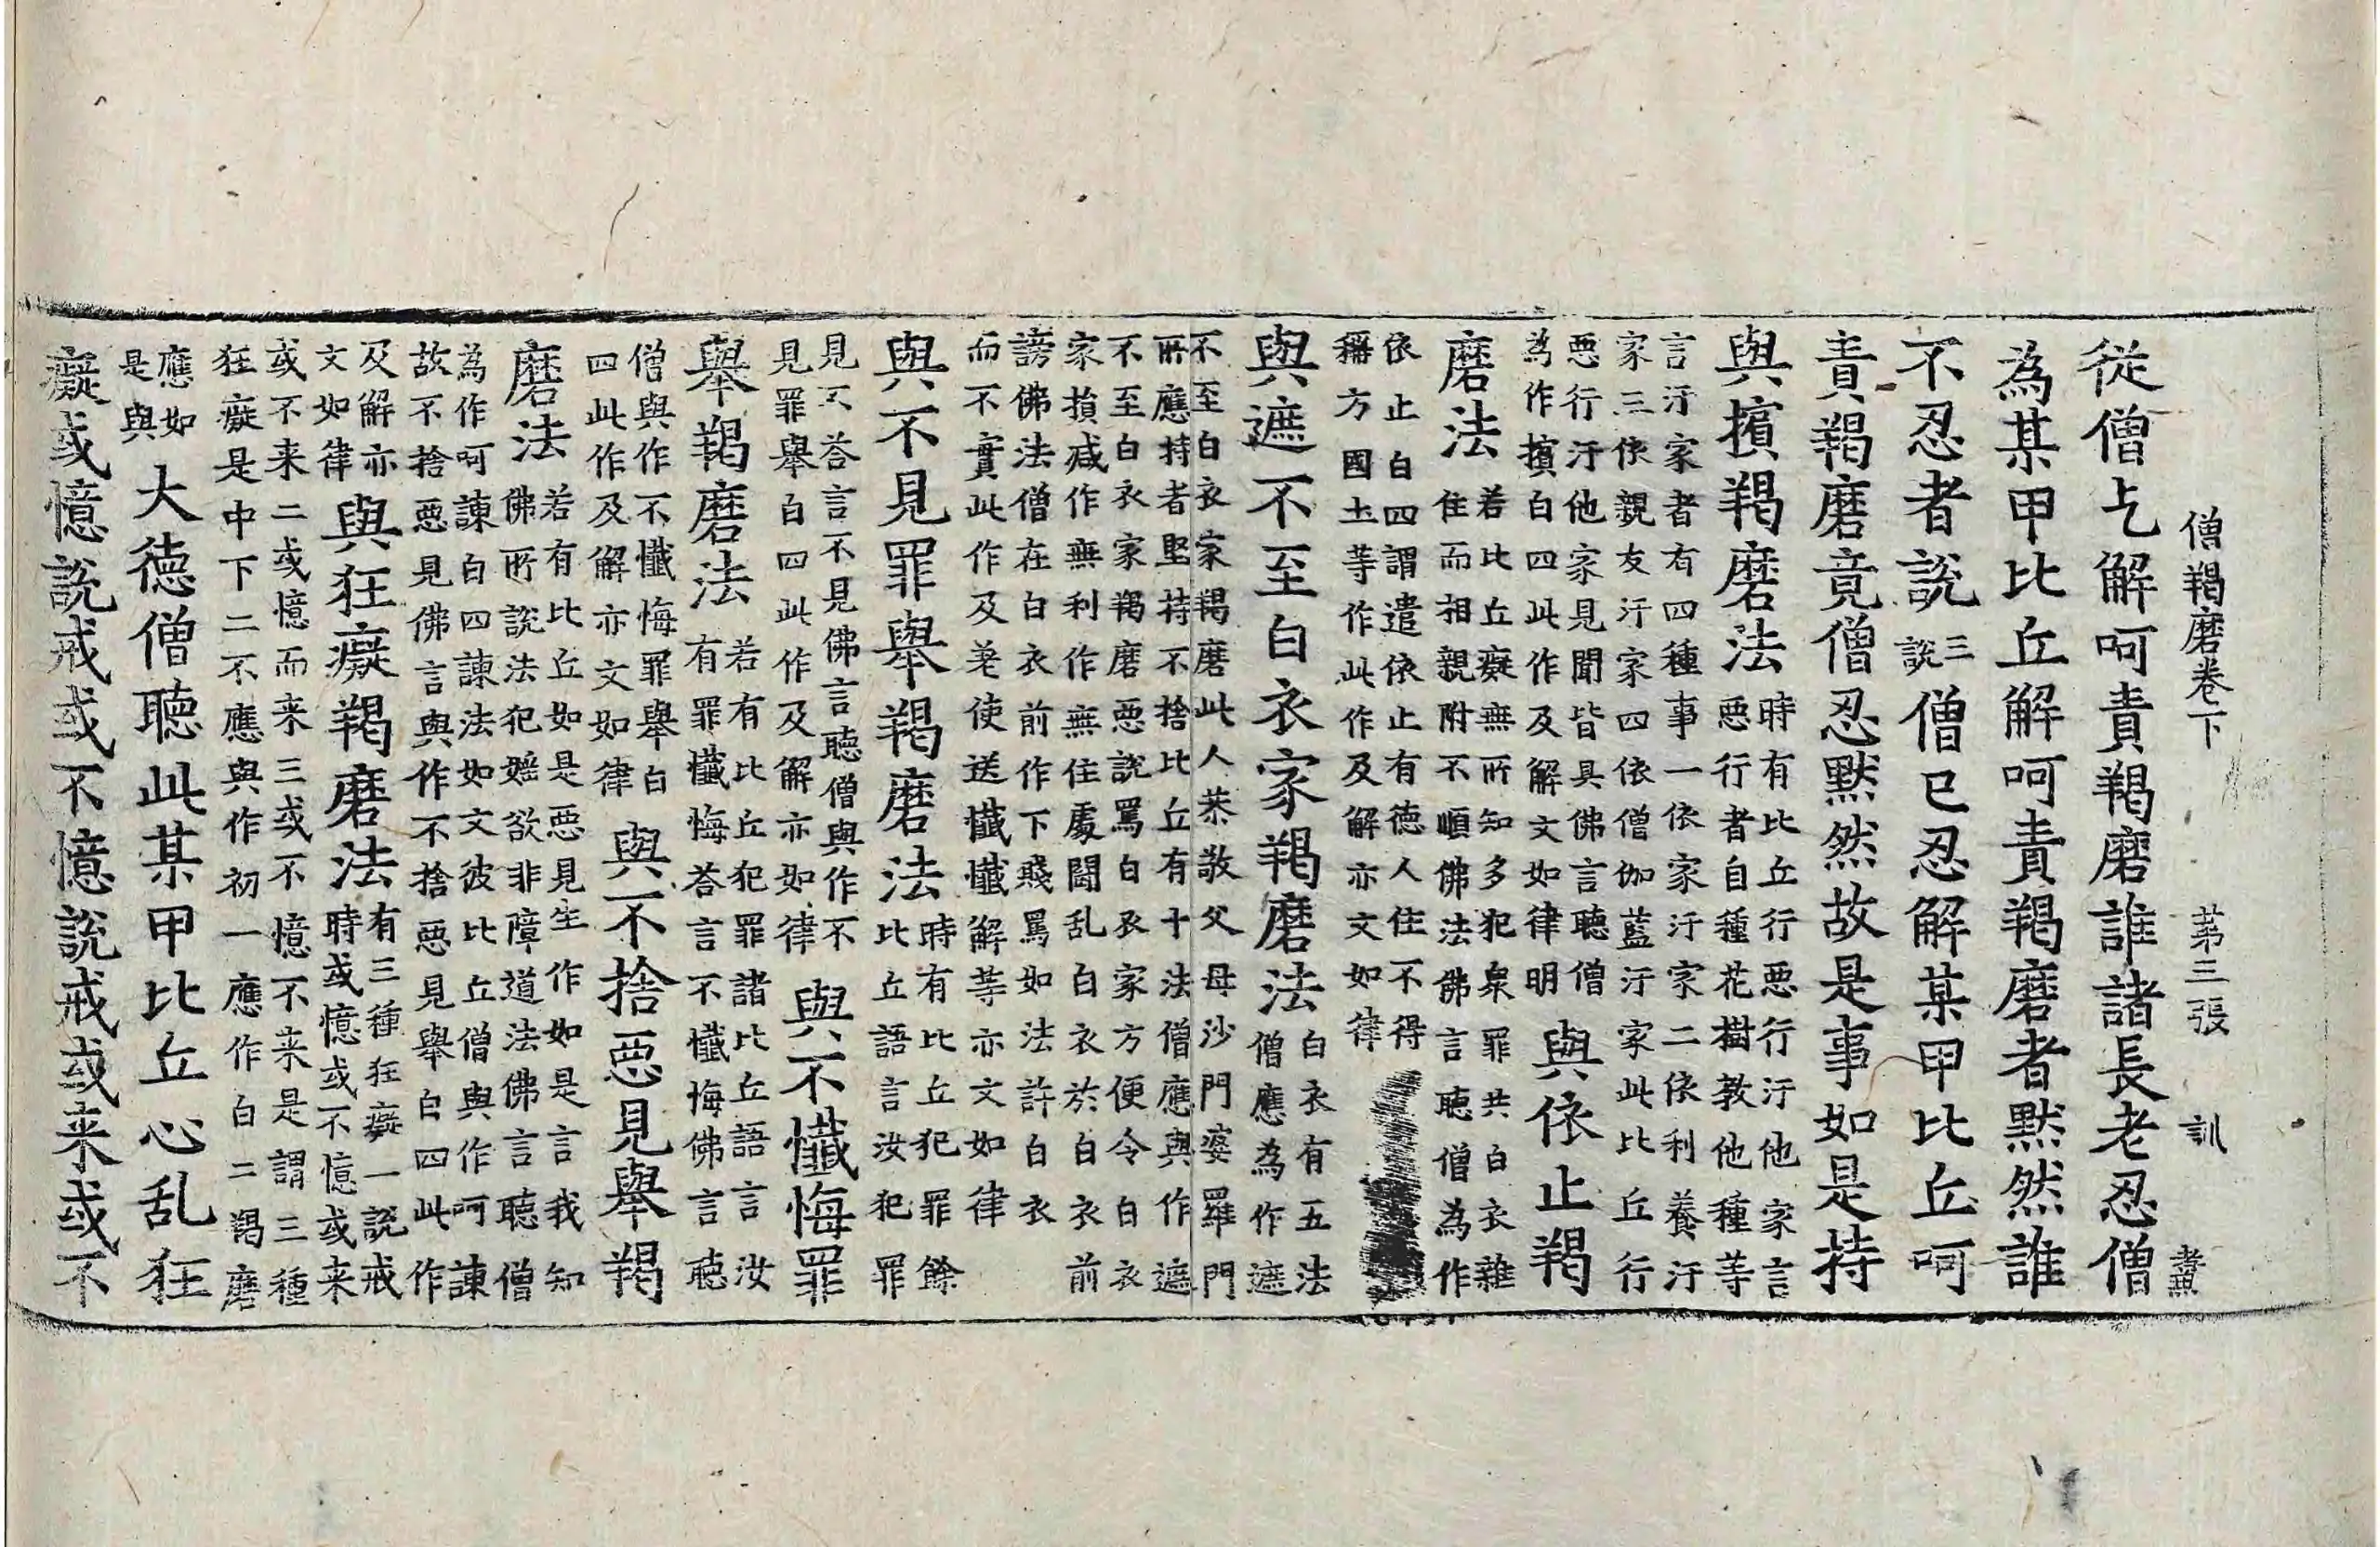 僧羯磨卷下 苐三張 訓
從僧乞解呵責羯磨誰諸長老忍僧
為某甲比丘解呵責羯磨者黙然誰
不忍者說三說僧已忍解某甲比丘呵
責羯磨竟僧忍黙然故是事如是持
與擯羯磨法時有比丘行惡行汙他家言
惡行者自種花樹教他種等
言汙家者有四種事一依家汙家二依利養汙
家三依親友汙家四依僧伽藍汙家此比丘行
惡行汙他家見聞皆具佛言聽僧
為作擯白四此作及解文如律明
與依止羯
磨法若比丘癡無所知多犯衆罪共白衣雜
住而相親附不順佛法佛言聽僧為作
依止白四謂遣依止有德人住不得
稱方國土等作此作及解亦文如律
與遮不至白衣家羯磨法白衣有五法
僧應為作遮
不至白衣家羯磨此人恭敬父母沙門婆羅門
所應持者堅持不捨比丘有十法僧應與作遮
不至白衣家羯磨惡說罵白衣家方便令白衣
家損减作無利作無住處閙乱白衣於白衣前
謗佛法僧在白衣前作下賤罵如法許白衣
而不實此作及差使送懺懺解等亦文如律
與不見罪舉羯磨法時有比丘犯罪餘
比丘語言汝犯罪
見不荅言不見佛言聽僧與作不
見罪舉白四此作及解亦如律
與不懺悔罪
舉羯磨法若有比丘犯罪諸比丘語言汝
有罪懺悔荅言不懺悔佛言聽
僧與作不懺悔罪舉白
四此作及解亦文如律
與不捨惡見舉羯
磨法若有比丘如是惡見生作如是言我知
佛所說法犯婬欲非障道法佛言聽僧
為作呵諫白四諫法如文彼比丘僧與作呵諫
故不捨惡見佛言與作不捨惡見舉白四此作
及解亦
文如律
與狂癡羯磨法有三種狂癡一說戒
時或憶或不憶或来
或不来二或憶而来三或不憶不来是謂三種
狂癡是中下二不應與作初一應作白二羯磨
應如
是與
大德僧聽此某甲比丘心乱狂
癡或憶說戒或不憶說戒或来或不